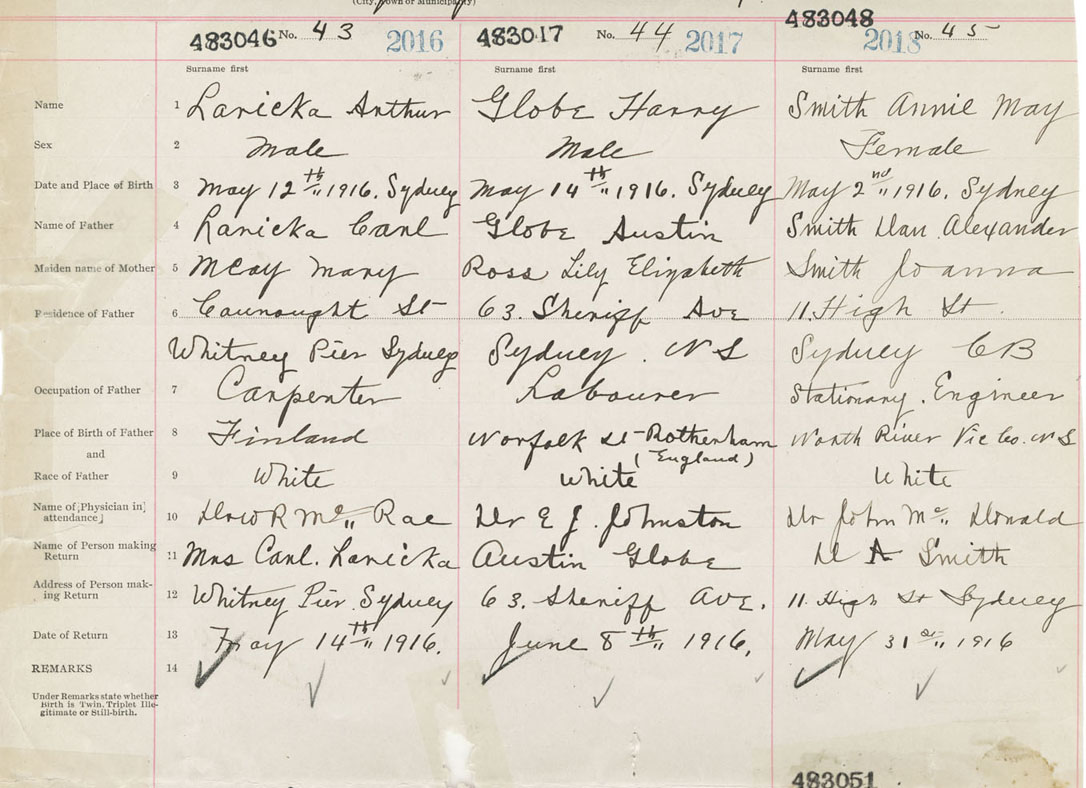 (City, Town or Municipality)
483046 No. 43 2016 483047 No. 44 2017 483048 2018 No. 45
Surname first Surname first Surname first
Name 1 Lanicka Arthur Globe Harry Smith Annie May
Sex 2 Male Male Female
Date and Place of Birth 3 May 12th 1916. Sydney May 14th 1916. Sydney May 2nd 1916. Sydney
Name of Father 4 Lanicka Carl Globe Austin Smith Dan Alexander
Maiden name of Mother 5 McCay Mary Ross Lily Elizabeth Smith Joanna
Residence of Father 6 Connought St 63. Sheriff Ave 11. High St.
Whitney Pier Sydney Sydney. N S Sydney CB
Occupation of Father 7 Carpenter Labourer Stationary. Engineer
Place of Birth of Father 8 Finland Norfolk St Rotherham North River Vic Co. N S
and (England)
Race of Father 9 White White White
Name of [Physician in attendance] 10 Mc Rae Dr E J. Johnston Dr John Mc Donald
Name of Person making Return 11 Mrs Carl. Lanicka Austin Globe D A Smith
Address of Person making Return 12 Whitney Pier Sydney 63. Sheriff Ave. 11. High St Sydney
Date of Return 13 May 14th 1916. June 8th 1916. May 31st 1916
REMARKS 14
Under Remarks state whether
Birth is Twin, Triplet Ille-
gitimate or Still-birth.
483051